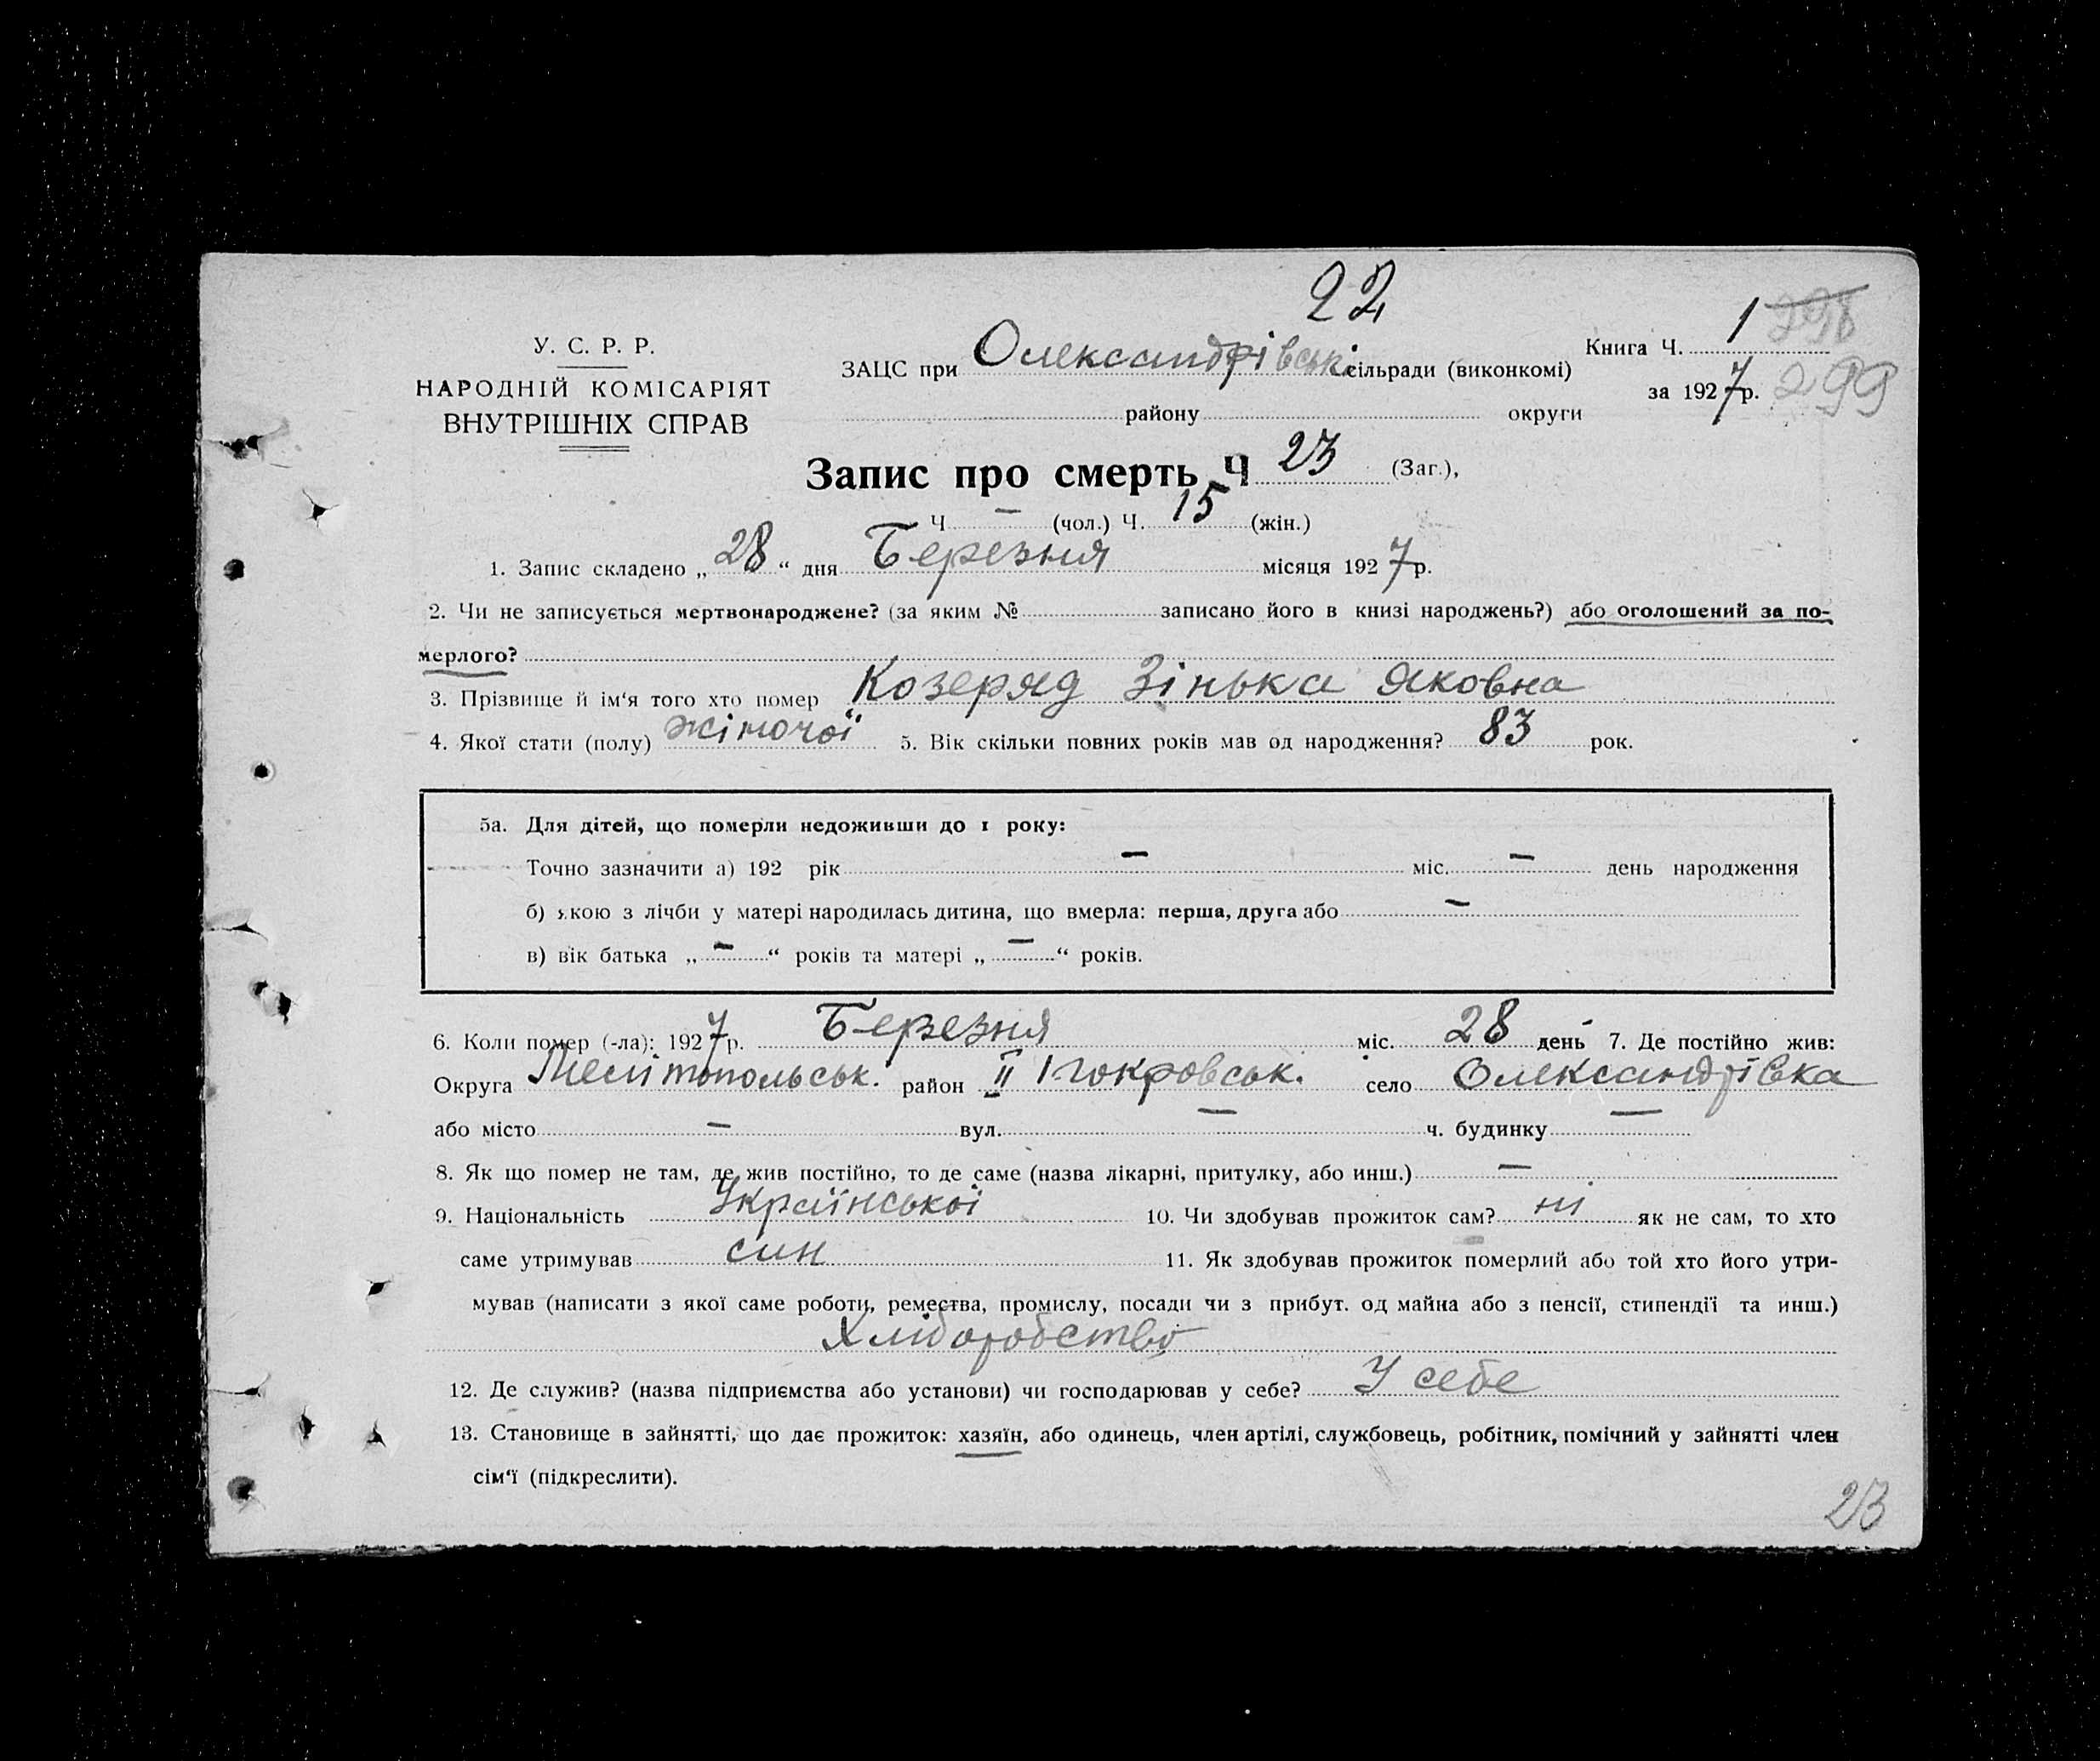 22
У. С. Р. Р.
НАРОДНІЙ КОМІСАРІЯТ
ВНУТРІШНІХ СПРАВ
ЗАЦС при Олександрівські сільради (виконкомі)
району округи
Книга Ч. 1 298
за 1927 р. 299
Запис про смерть Ч 23 (Заг.),
Ч. — (чол.) Ч. 15 (жін.)
1. Запис складено „28“ дня Березня місяця 1927 р.
2. Чи не записується мертвонароджене? (за яким № записано його в книзі народжень?) або оголошений за по-
мерлого?
3. Прізвище й ім‘я того хто помер Козеряд Зінька Яковна
4. Якої стати (полу) жіночої 5. Вік скільки повних років мав од народження? 83 рок.
5а. Для дітей, що померли недоживши до 1 року:
Точно зазначити а) 192 рік — міс. — день народження
б) якою з лічби у матері народилась дитина, що вмерла: перша, друга або —
в) вік батька „—“ років та матері „—“ років.
6. Коли помер (-ла): 1927 р. Березня міс. 28 день 7. Де постійно жив:
Округа Мелітопольськ. район II Покровськ. село Олександрівка
або місто — вул. — ч. будинку —
8. Як що помер не там, де жив постійно, то де саме (назва лікарні, притулку, або инш.) —
9. Національність Української 10. Чи здобував прожиток сам? ні як не сам, то хто
саме утримував син 11. Як здобував прожиток померлий або той хто його утри-
мував (написати з якої саме роботи, ремества, промислу, посади чи з прибут. од майна або з пенсії, стипендії та инш.)
Хліборобство
12. Де служив? (назва підприємства або установи) чи господарював у себе? У себе
13. Становище в зайнятті, що дає прожиток: хазяїн, або одинець, член артілі, службовець, робітник, помічний у зайнятті член
сім‘ї (підкреслити).
23